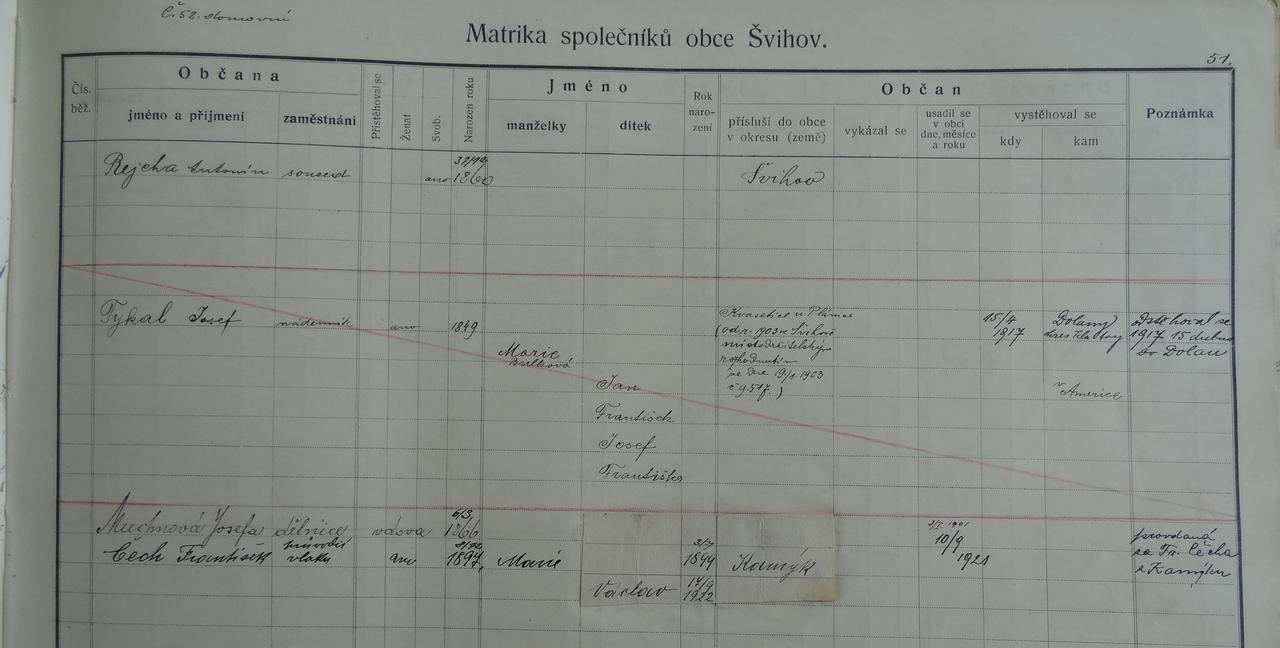 Č. 52. domovní
Matrika společníků obce Švihov.
51.
Čís. běž.
Občana
jméno a příjmení
zaměstnání
Přistěhoval se
Ženat
Svob.
Narozen roku
Jméno
manželky
dítek
Rok narození
Občan
přísluší do obce v okresu (země)
vykázal se
usadil se v obci dne, měsíce a roku
vystěhoval se
kdy
kam
Poznámka
Rejcha Antonín soused ano 1860 Švihov
Týkal Josef nádenník ano 1849
Marie
Jan
František
Josef
Františka
Kvasetice u Plánice
(od r. 1903 ve Švihově
místodržitelským
rozhodnutím
ze dne 19/1 1903
15/4
1917
Dolany
okres Klatovy
v Americe
odstěhoval se
1917 15 dubna
do Dolan
Muchnová Josefa dělnice vdova 6/3 1866
Čech František průvodčí vlaku ano 1897 Marie 1899 Kamýk
10/9
1921
Václav 17/9 1922
provdaná
za Fr. Čecha
z Kamýku